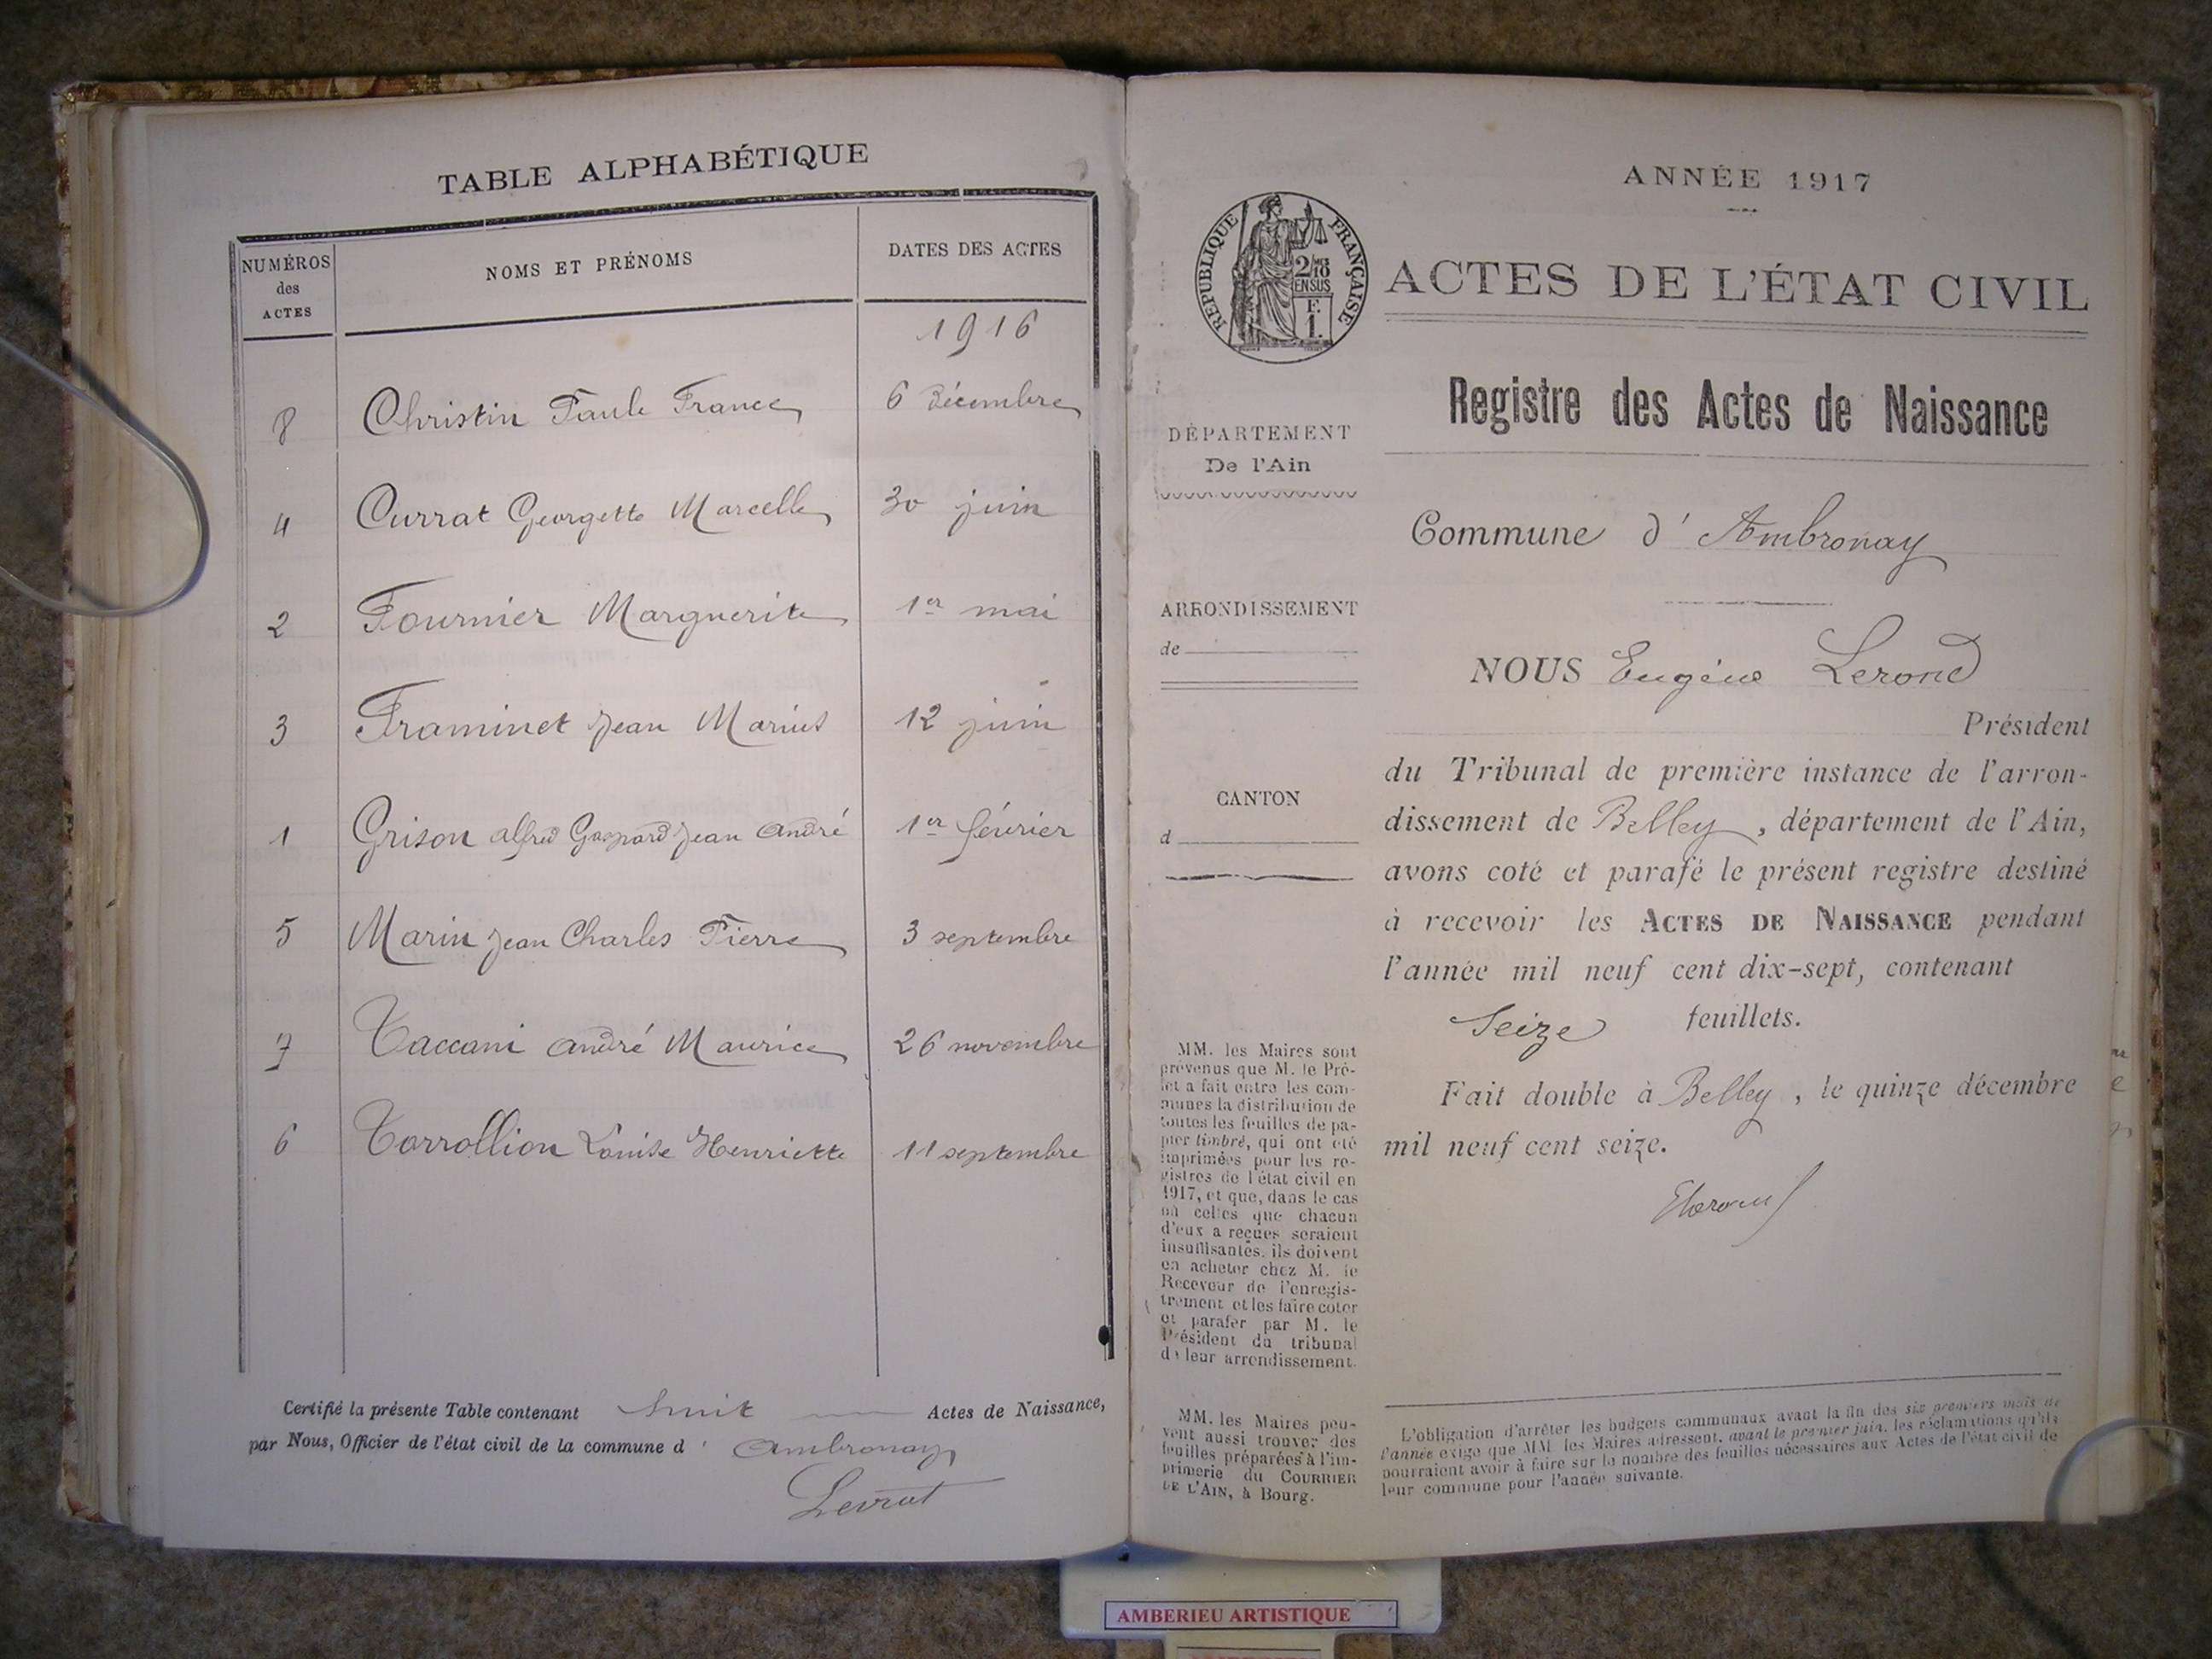 TABLE ALPHABÉTIQUE
NUMÉROS
des
ACTES
NOMS ET PRÉNOMS
DATES DES ACTES
1916
8 Christin Paule France 6 décembre
4 Currat Georgette Marcelle 30 juin
2 Fournier Marguerite 1er mai
3 Framinet Jean Marius 12 juin
1 Grison Alfred Gaspard Jean André 1er février
5 Marin Jean Charles Pierre 3 septembre
7 Taccani André Maurice 26 novembre
6 Torrollion Louise Henriette 11 septembre
Certifié la présente Table contenant huit Actes de Naissance,
par Nous, Officier de l'état civil de la commune d' Ambronay
Levrat
ANNÉE 1917
RÉPUBLIQUE FRANÇAISE
2/10 MES
EN SUS
F.
1.
ACTES DE L'ÉTAT CIVIL
Registre des Actes de Naissance
DÉPARTEMENT
De l'Ain
Commune d' Ambronay
ARRONDISSEMENT
de
CANTON
d
NOUS Eugène Lerond
Président
du Tribunal de première instance de l'arron-
dissement de Belley, département de l'Ain,
avons coté et parafé le présent registre destiné
à recevoir les ACTES DE NAISSANCE pendant
l'année mil neuf cent dix-sept, contenant
Seize feuillets.
Fait double à Belley, le quinze décembre
mil neuf cent seize.
MM. les Maires sont
prévenus que M. le Pré-
fet a fait entre les com-
munes la distribution de
toutes les feuilles de pa-
pier timbré, qui ont été
imprimées pour les re-
gistres de l'état civil en
1917, et que, dans le cas
où celles que chacun
d'eux a reçues seraient
insuffisantes, ils doivent
en acheter chez M. le
Receveur de l'enregis-
trement et les faire coter
et parafer par M. le
Président du tribunal
de leur arrondissement.
MM. les Maires peu-
vent aussi trouver des
feuilles préparées à l'im-
primerie du COURRIER
DE L'AIN, à Bourg.
L'obligation d'arrêter les budgets communaux avant la fin des six premiers mois de
l'année exige que MM. les Maires adressent, avant le premier juin, les réclamations qu'ils
pourraient avoir à faire sur le nombre des feuilles nécessaires aux Actes de l'état civil de
leur commune pour l'année suivante.
AMBERIEU ARTISTIQUE